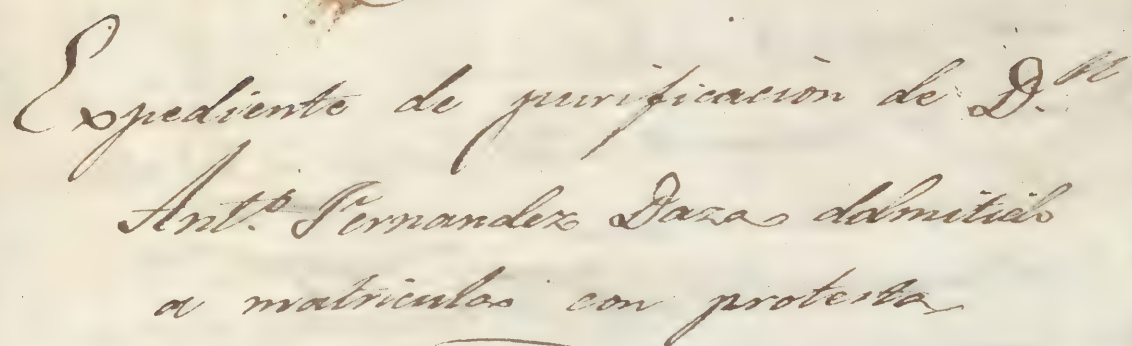 Expediente de purificación de D.n
Ant.o Fernandez Daza admitido
a matricula con protesta